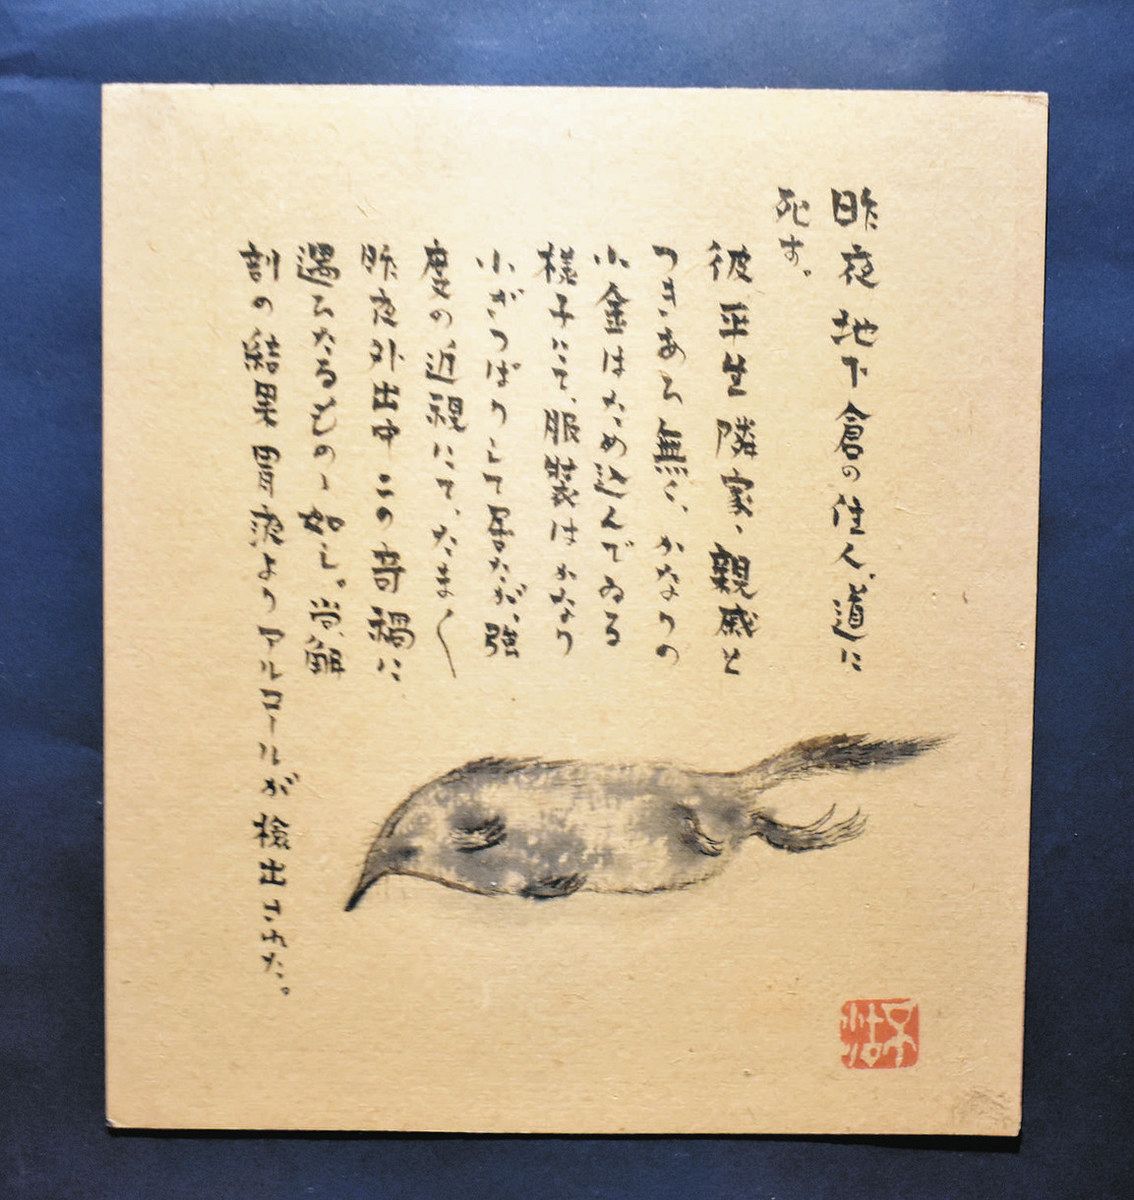 昨夜 地下倉の住人、道に
死す。
彼平生隣家、親戚と
つきあひ無く、かなりの
小金はため込んでゐる
様子にて、服装はかなり
小ざつぱりして居たが、強
度の近視にて、たま〱
昨夜外出中この奇禍に
遇ひたるものゝ如し。尚、解
剖の結果胃液よりアルコールが検出された。